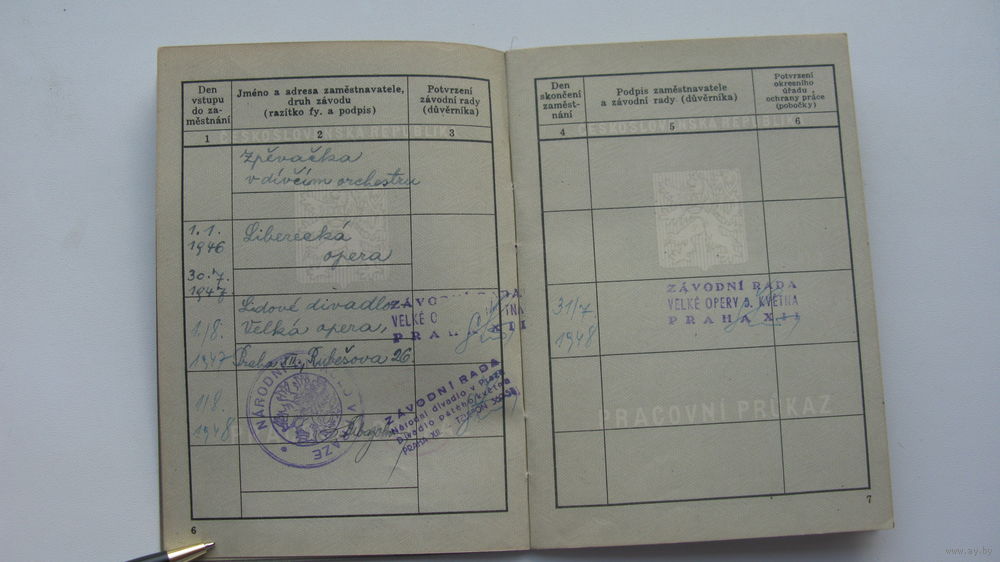 Den
vstupu
do za-
městnání
Jméno a adresa zaměstnavatele,
druh závodu
(razítko fy. a podpis)
Potvrzení
závodní rady
(důvěrníka)
1
2
3
ČESKOSLOVENSKÁ REPUBLIK
Zpěvačka
v dívčím orchestru
1.1.
1946
Liberecká
opera
30.7.
1947
Lidové divadlo
1./8.
Velká opera,
1947
Praha XII., Rubešova 26
ZÁVO
RADA
VELKÉ O
TNA
PRAHA XII
1/8.
1948
NÁRODNÍ
V PRAZE
ZÁVODNÍ RADA
Národní divadlo v Praze
Divadlo pátého května
PRAHA XII. TELEFON
6
Den
skončení
zaměst-
nání
Podpis zaměstnavatele
a závodní rady (důvěrníka)
Potvrzení
okresního
úřadu
ochrany práce
(pobočky)
4
5
6
ČESKOSLOVENSKÁ REPUBLIK
31/7.
1948
ZÁVODNÍ RADA
VELKÉ OPERY 5. KVĚTNA
PRAHA XII
PRACOVNÍ PRŮKAZ
7
www.ay.by